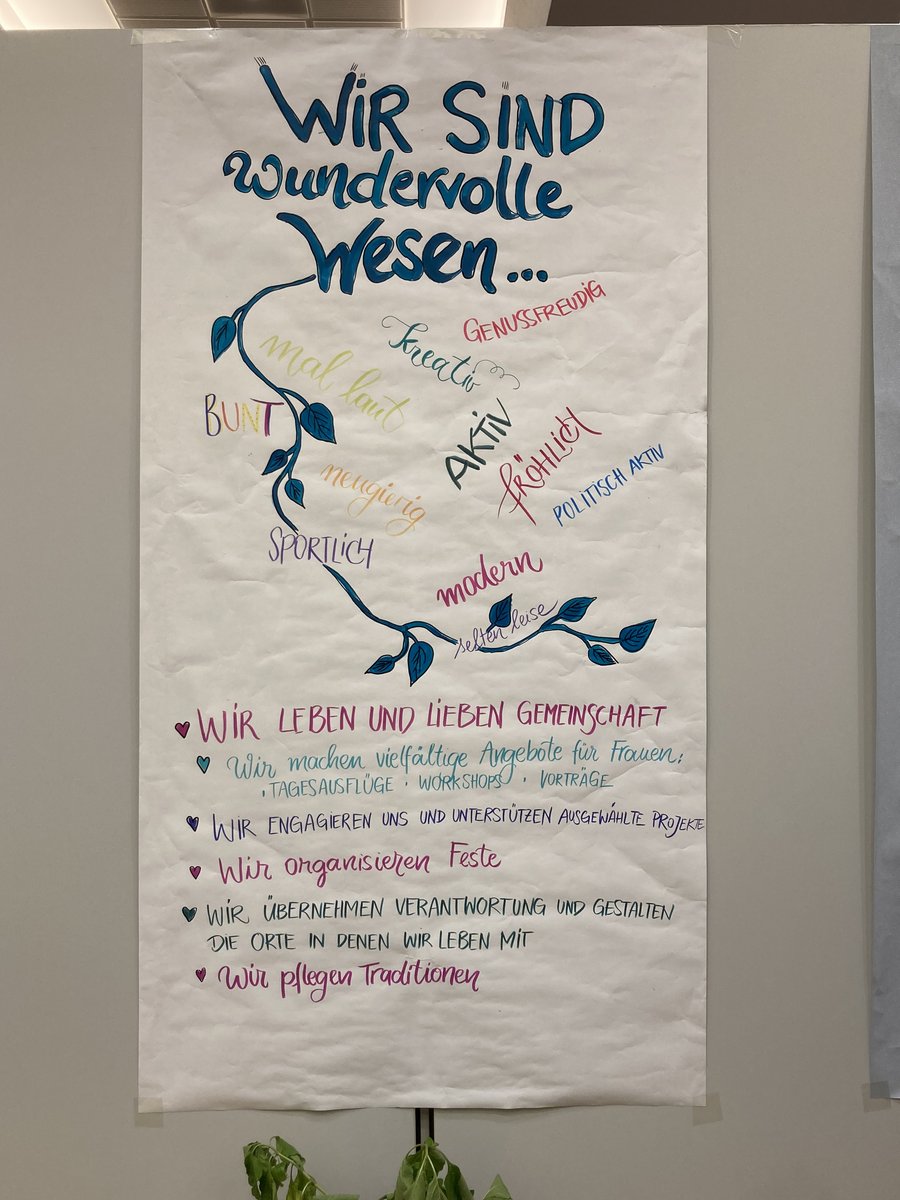 WIR SIND
wundervolle
Wesen...
GENUSSFREUDIG
kreativ
mal laut
BUNT
AKTIV
fRÖHLICH
POLITISCH AKTIV
neugierig
SPORTLICH
modern
selten leise
WIR LEBEN UND LIEBEN GEMEINSCHAFT
Wir machen vielfältige Angebote für Frauen:
• TAGESAUSFLÜGE • WORKSHOPS • VORTRÄGE
WIR ENGAGIEREN UNS UND UNTERSTÜTZEN AUSGEWÄHLTE PROJEKTE
Wir organisieren Feste
WIR ÜBERNEHMEN VERANTWORTUNG UND GESTALTEN
DIE ORTE IN DENEN WIR LEBEN MIT
Wir pflegen Traditionen